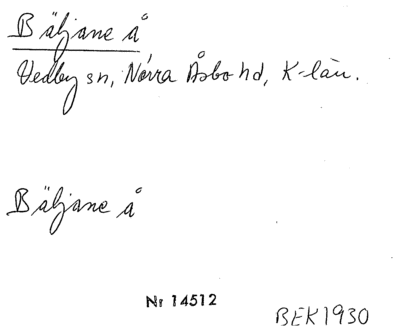 Bäljane å
Vedby sn, Norra Åsbo hd, K-län.
Bäljane å
Nr 14512
BEK1930